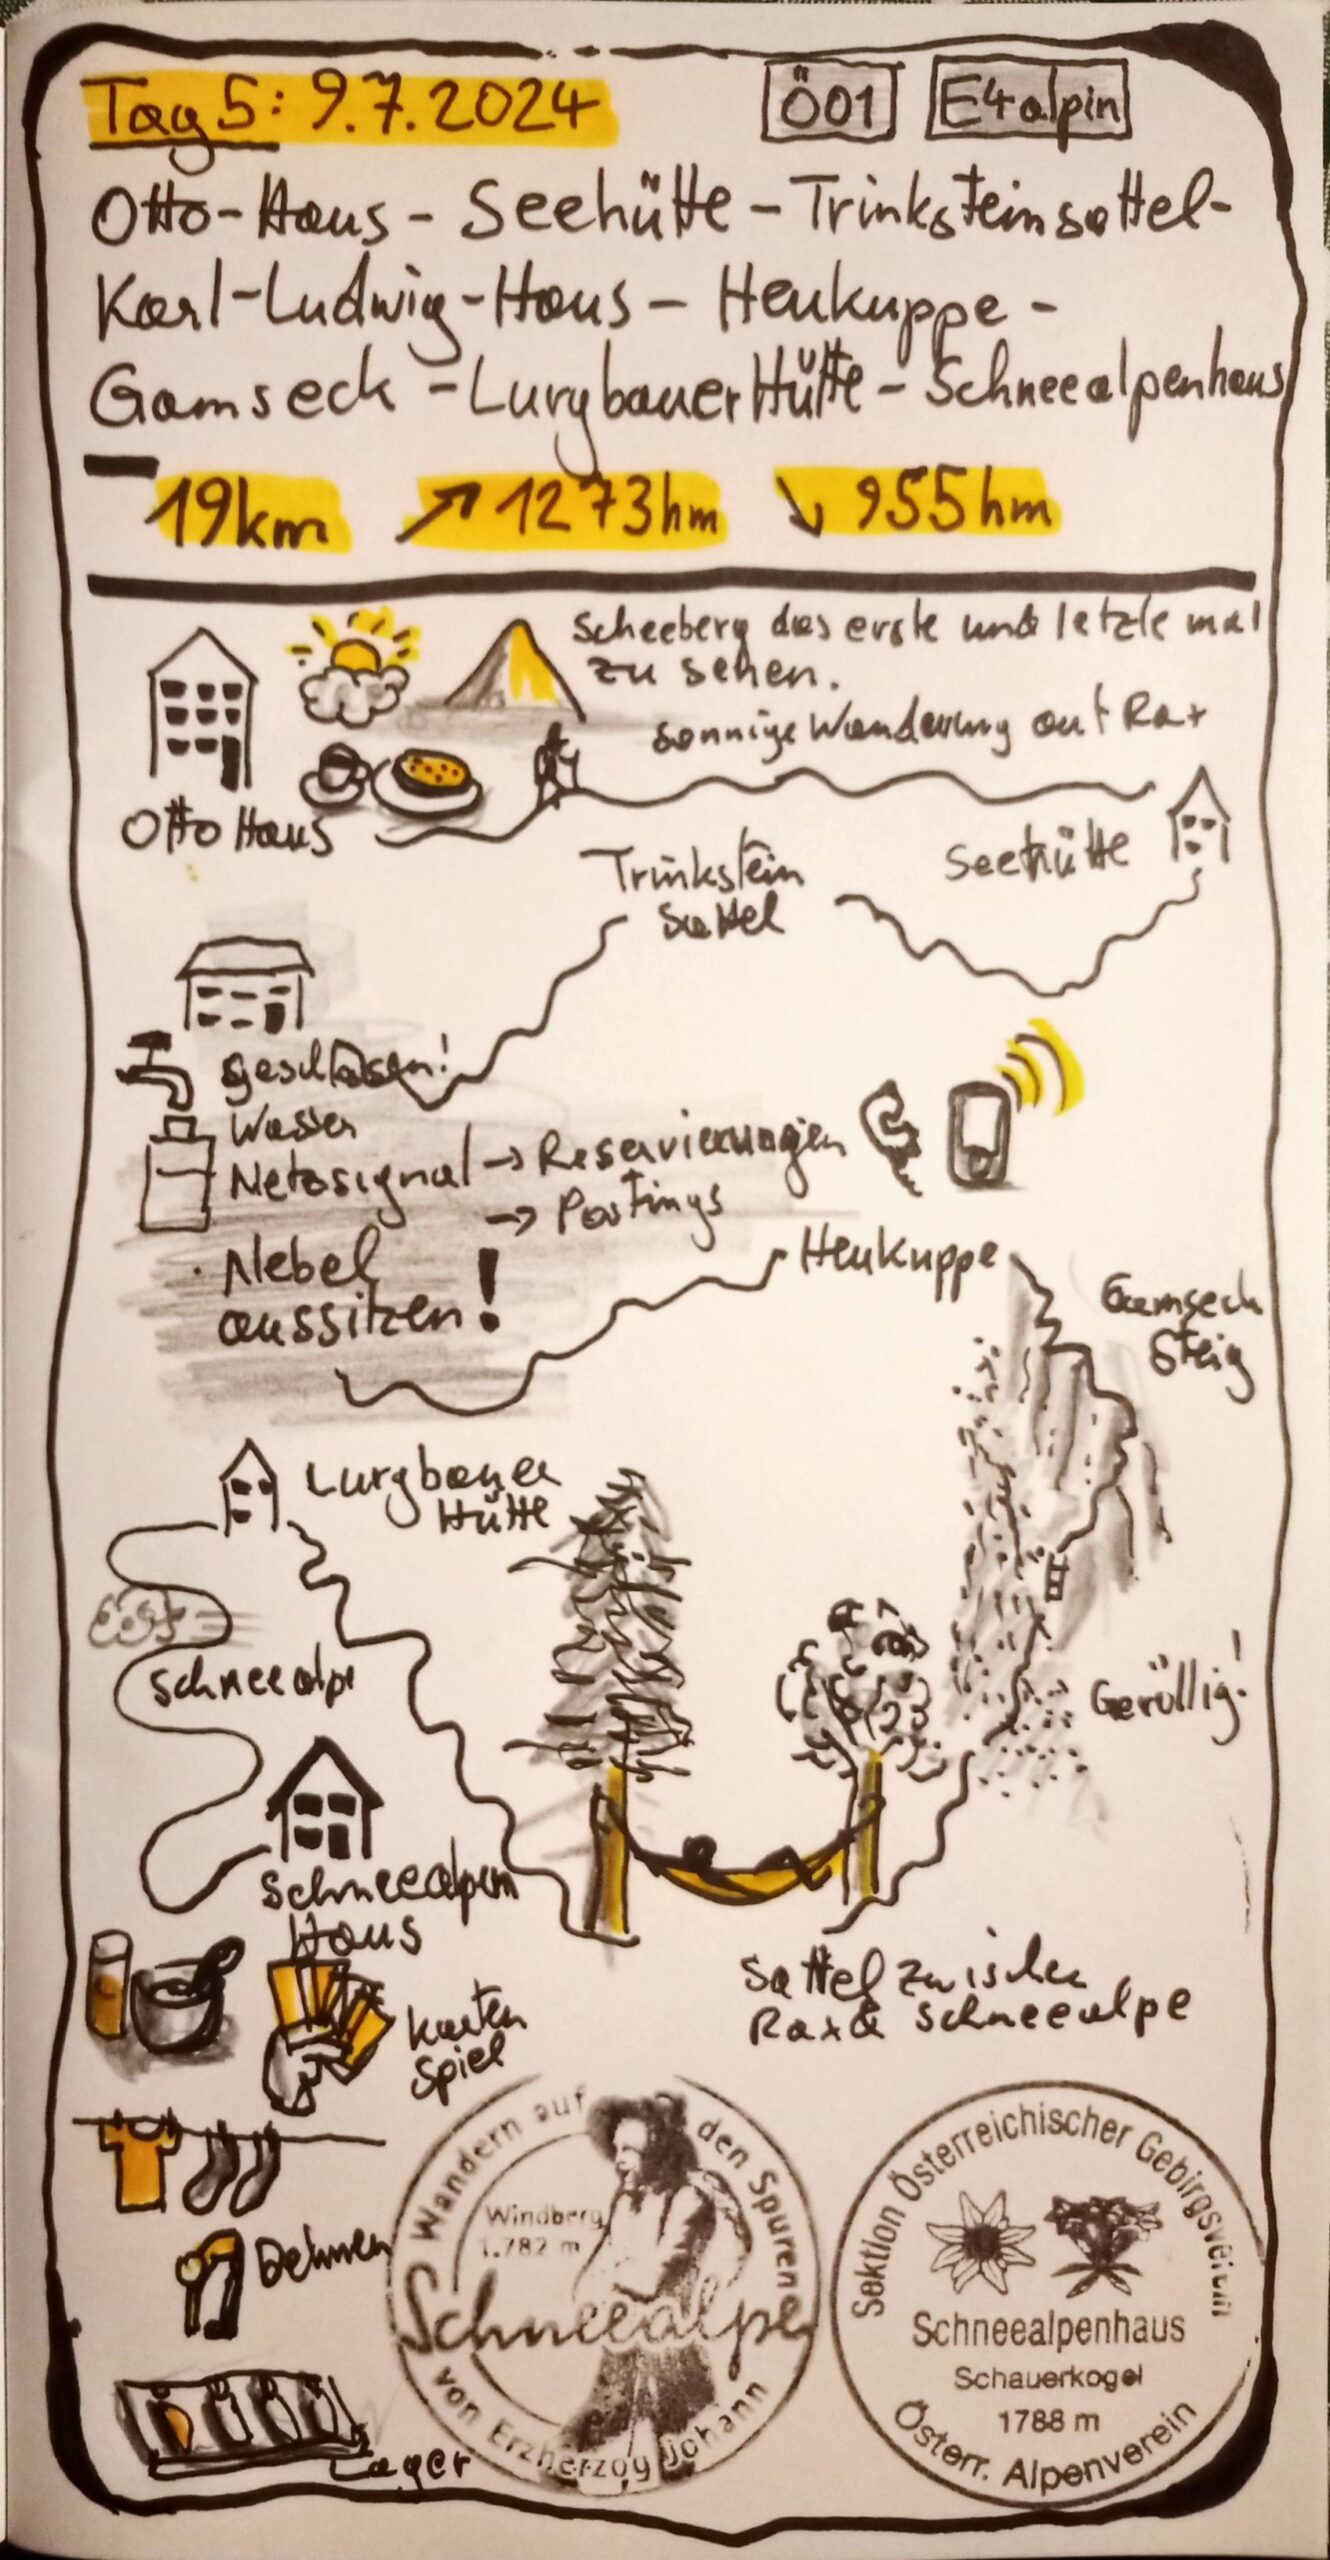 Tag 5: 9.7.2024
Ö01
E4alpin
Otto-Haus - Seehütte - Trinksteinsattel-
Karl-Ludwig-Haus - Heukuppe -
Gamseck - LurgbauerHütte - Schneealpenhaus
19km ↗ 1273hm ↘ 955hm
Scheeberg das erste und letzte mal
zu sehen.
sonnige Wanderung auf Rax
Otto Haus
Seehütte
Trinkstein
Sattel
geschlossen!
Wasser
Netzsignal → Reservierungen
→ Postings
Nebel
aussitzen!
Heukuppe
Gamseck
Steig
Lurgbauer
Hütte
Schneealpe
Geröllig!
Schneealpen
Haus
Sattel zwischen
Rax & Schneealpe
Karten
Spiel
Dehnen
Lager
Wandern auf den Spuren
Windberg
1.782 m
Schneealpe
von Erzherzog Johann
Sektion Österreichischer Gebirgsverein
Schneealpenhaus
Schauerkogel
1788 m
Österr. Alpenverein